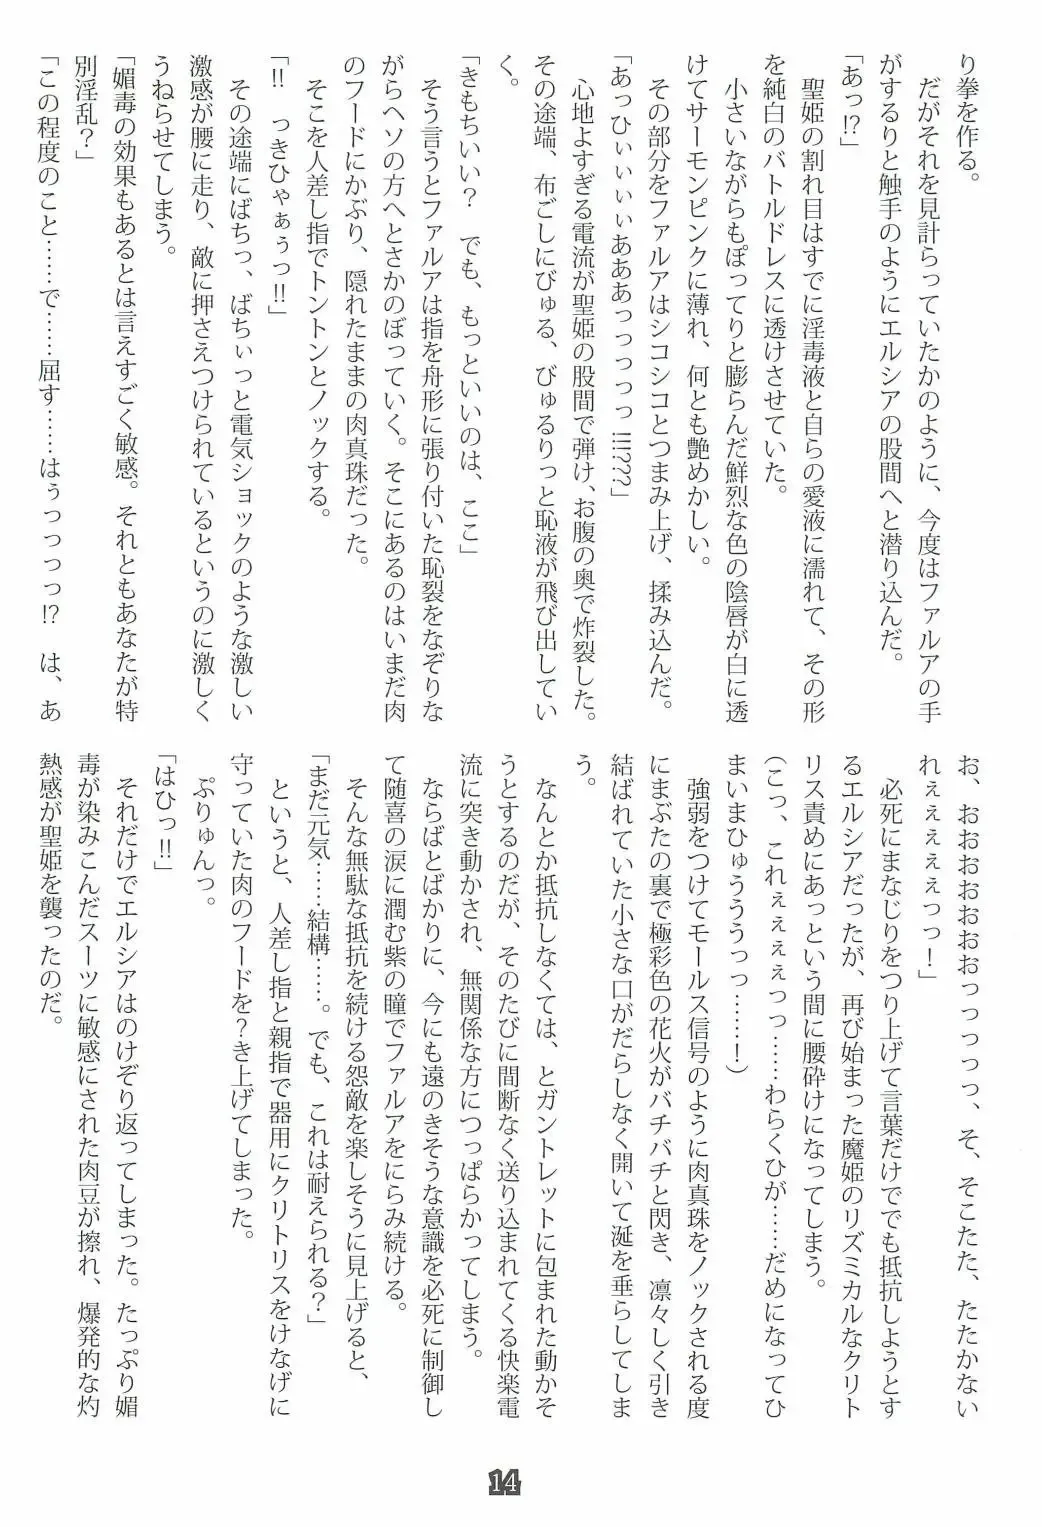 り拳を作る。
だがそれを見計らっていたかのように、今度はファルアの手
がするりと触手のようにエルシアの股間へと潜り込んだ。
「あっ!?」
聖姫の割れ目はすでに淫毒液と自らの愛液に濡れて、その形
を純白のバトルドレスに透けさせていた。
小さいながらもぽってりと膨らんだ鮮烈な色の陰唇が白に透
けてサーモンピンクに薄れ、何とも艶めかしい。
その部分をファルアはシコシコとつまみ上げ、揉み込んだ。
「あっひぃぃぃぃあああっっっっ!!!???」
心地よすぎる電流が聖姫の股間で弾け、お腹の奥で炸裂した。
その途端、布ごしにびゅる、びゅるりっと恥液が飛び出してい
く。
「きもちいい？　でも、もっといいのは、ここ」
そう言うとファルアは指を舟形に張り付いた恥裂をなぞりな
がらヘソの方へとさかのぼっていく。そこにあるのはいまだ肉
のフードにかぶり、隠れたままの肉真珠だった。
そこを人差し指でトントンとノックする。
「!!　っきひゃぁぅっ!!」
その途端にばちっ、ばちぃっと電気ショックのような激しい
激感が腰に走り、敵に押さえつけられているというのに激しく
うねらせてしまう。
「媚毒の効果もあるとは言えすごく敏感。それともあなたが特
別淫乱？」
「この程度のこと……で……屈す……はぅっっっっ!?　は、あ
お、おおおおおおおっっっっ、そ、そこたた、たたかない
れぇぇぇぇぇっっ！」
必死にまなじりをつり上げて言葉だけででも抵抗しようとす
るエルシアだったが、再び始まった魔姫のリズミカルなクリト
リス責めにあっという間に腰砕けになってしまう。
（こっ、これぇぇぇぇっっ……わらくひが……だめになってひ
まいまひゅうううっっ………！）
強弱をつけてモールス信号のように肉真珠をノックされる度
にまぶたの裏で極彩色の花火がバチバチと閃き、凛々しく引き
結ばれていた小さな口がだらしなく開いて涎を垂らしてしま
う。
なんとか抵抗しなくては、とガントレットに包まれた動かそ
うとするのだが、そのたびに間断なく送り込まれてくる快楽電
流に突き動かされ、無関係な方につっぱらかってしまう。
ならばとばかりに、今にも遠のきそうな意識を必死に制御し
て随喜の涙に潤む紫の瞳でファルアをにらみ続ける。
そんな無駄な抵抗を続ける怨敵を楽しそうに見上げると、
「まだ元気……結構……。でも、これは耐えられる？」
というと、人差し指と親指で器用にクリトリスをけなげに
守っていた肉のフードを？き上げてしまった。
ぷりゅんっ。
「はひっ!!」
それだけでエルシアはのけぞり返ってしまった。たっぷり媚
毒が染みこんだスーツに敏感にされた肉豆が擦れ、爆発的な灼
熱感が聖姫を襲ったのだ。
14